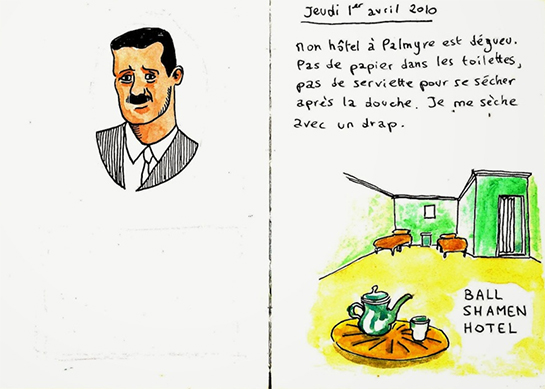 Jeudi 1er avril 2010
mon hôtel à Palmyre est dégueu.
Pas de papier dans les toilettes,
pas de serviette pour se sécher
après la douche. Je me sèche
avec un drap.
BALL
SHAMEN
HOTEL